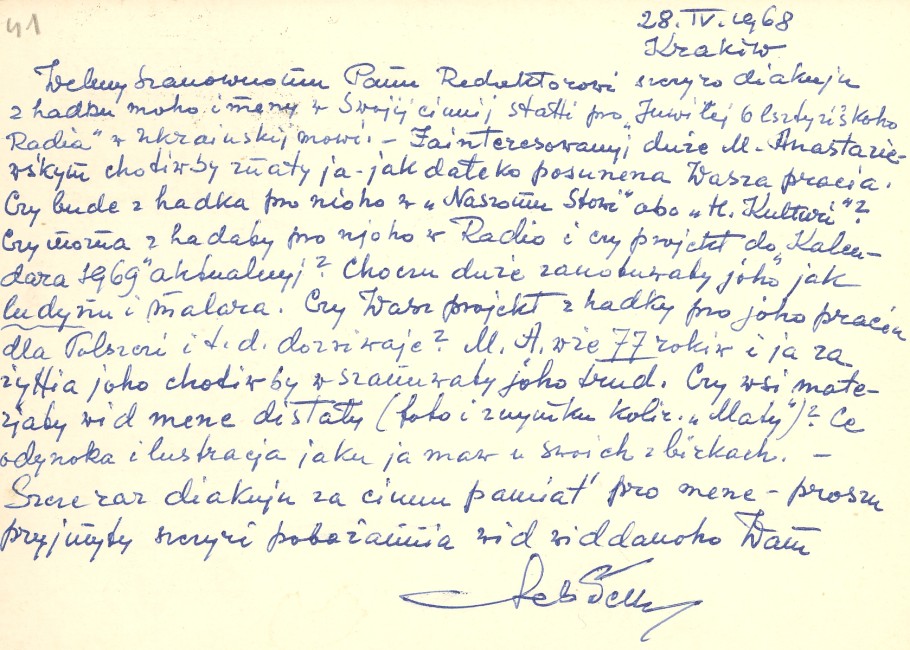 41
28. IV. 1968
Kraków
Welmyszanownomu Panu Redaktorowi szczyro diakuju
z hadku moho imeny w Swojij cinnij statti pro „Juwiłej Olsztyńśkoho
Radia" w Ukrainśkij mowi. – Zainteresowanyj duże M. Anastazie-
wśkym chotiwby znaty ja - jak dałeko posunena Wasza pracia.
Czy bude z hadka pro nioho w „Naszomu Słowi" abo „N. Kulturi"?
Czy można z hadaty pro njoho w Radio i czy projekt do „Kalen-
dara 1969" aktualnyj? Choczu duże zanotuwaty joho jak
ludynu i malara. Czy Wasz projekt z hadky pro joho praciu
dla Polszczi i t. d. dozriwaje? M. A. wże 77 rokiw i ja za
żyttia joho chotiw by wszanuwaty joho trud. Czy wsi mate-
rjały wid mene distały (foto i znymku kolir. „Maty")? Ce
odynoka ilustracja jaku ja maw u swoich zbirkach. –
Szcze raz diakuju za cinnu pamiat' pro mene - proszu
pryjmyty szczyri pobażannia wid widdanoho Wam